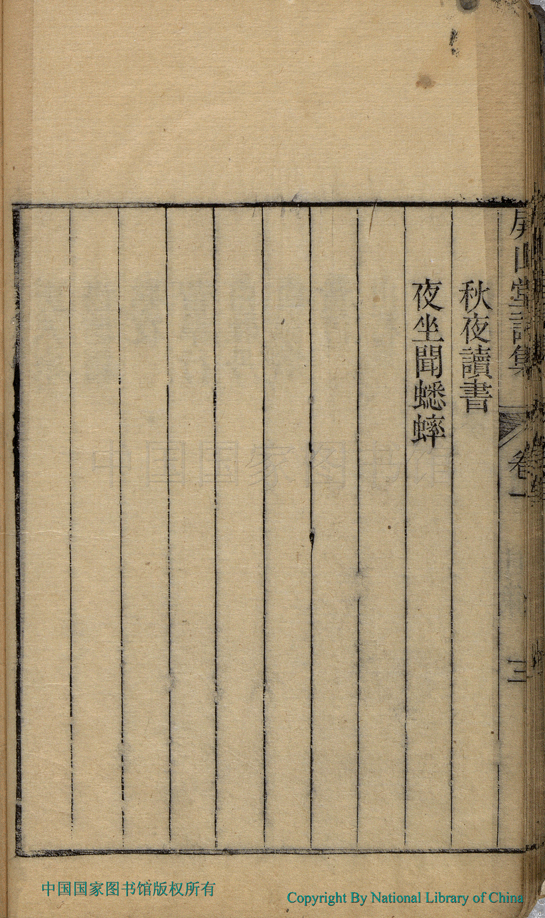 屏山堂詩集
卷一
三
秋夜讀書
夜坐聞蟋蟀
中国国家图书馆
中国国家图书馆版权所有
Copyright By National Library of China